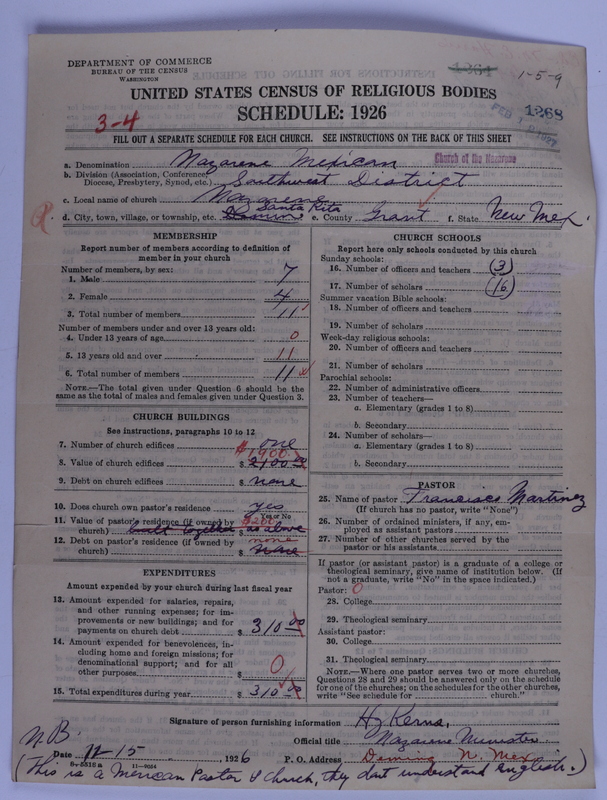 DEPARTMENT OF COMMERCE
BUREAU OF THE CENSUS
WASHINGTON
1264
1-5-9
UNITED STATES CENSUS OF RELIGIOUS BODIES
FEB 1927
1268
SCHEDULE: 1926
3-4
FILL OUT A SEPARATE SCHEDULE FOR EACH CHURCH. SEE INSTRUCTIONS ON THE BACK OF THIS SHEET
a. Denomination Nazarene Mexican Church of the Nazarene
b. Division (Association, Conference, Diocese, Presbytery, Synod, etc.) Southwest District
c. Local name of church Nazarene
d. City, town, village, or township, etc. Deming Santa Rita e. County Grant f. State New Mex.
MEMBERSHIP
Report number of members according to definition of
member in your church
Number of members, by sex:
1. Male 7
2. Female 4
3. Total number of members 11
Number of members under and over 13 years old:
4. Under 13 years of age 0
5. 13 years old and over 11
6. Total number of members 11
NOTE.—The total given under Question 6 should be the
same as the total of males and females given under Question 3.
CHURCH BUILDINGS
See instructions, paragraphs 10 to 12
7. Number of church edifices one
$1900
8. Value of church edifices $ 2100.00
9. Debt on church edifices $ none
10. Does church own pastor's residence yes
Yes or No
11. Value of pastor's residence (if owned by $200
church) built together $ as above
12. Debt on pastor's residence (if owned by none
church) $ none
EXPENDITURES
Amount expended by your church during last fiscal year
13. Amount expended for salaries, repairs,
and other running expenses; for im-
provements or new buildings; and for
payments on church debt $ 310.00
14. Amount expended for benevolences, in-
cluding home and foreign missions; for
denominational support; and for all
other purposes $ 0
15. Total expenditures during year $ 310.00
CHURCH SCHOOLS
Report here only schools conducted by this church
Sunday schools:
16. Number of officers and teachers (3)
17. Number of scholars (16)
Summer vacation Bible schools:
18. Number of officers and teachers
19. Number of scholars
Week-day religious schools:
20. Number of officers and teachers
21. Number of scholars
Parochial schools:
22. Number of administrative officers
23. Number of teachers—
a. Elementary (grades 1 to 8)
b. Secondary
24. Number of scholars—
a. Elementary (grades 1 to 8)
b. Secondary
PASTOR
25. Name of pastor Francisco Martinez
(If church has no pastor, write "None")
26. Number of ordained ministers, if any, em-
ployed as assistant pastors
27. Number of other churches served by the
pastor or his assistants
If pastor (or assistant pastor) is a graduate of a college or
theological seminary, give name of institution below. (If
not a graduate, write "No" in the space indicated.)
Pastor: 0
28. College
29. Theological seminary
Assistant pastor:
30. College
31. Theological seminary
NOTE.—Where one pastor serves two or more churches,
Questions 28 and 29 should be answered only on the schedule
for one of the churches; on the schedules for the other churches,
write "See schedule for church."
Signature of person furnishing information Kerns,
Official title Nazarene Minister
N.B.
Date 11-15, 1926 P. O. Address Deming N. Mex
8-5518a 11-9064
(This is a Mexican Pastor & church, they dont understand english.)